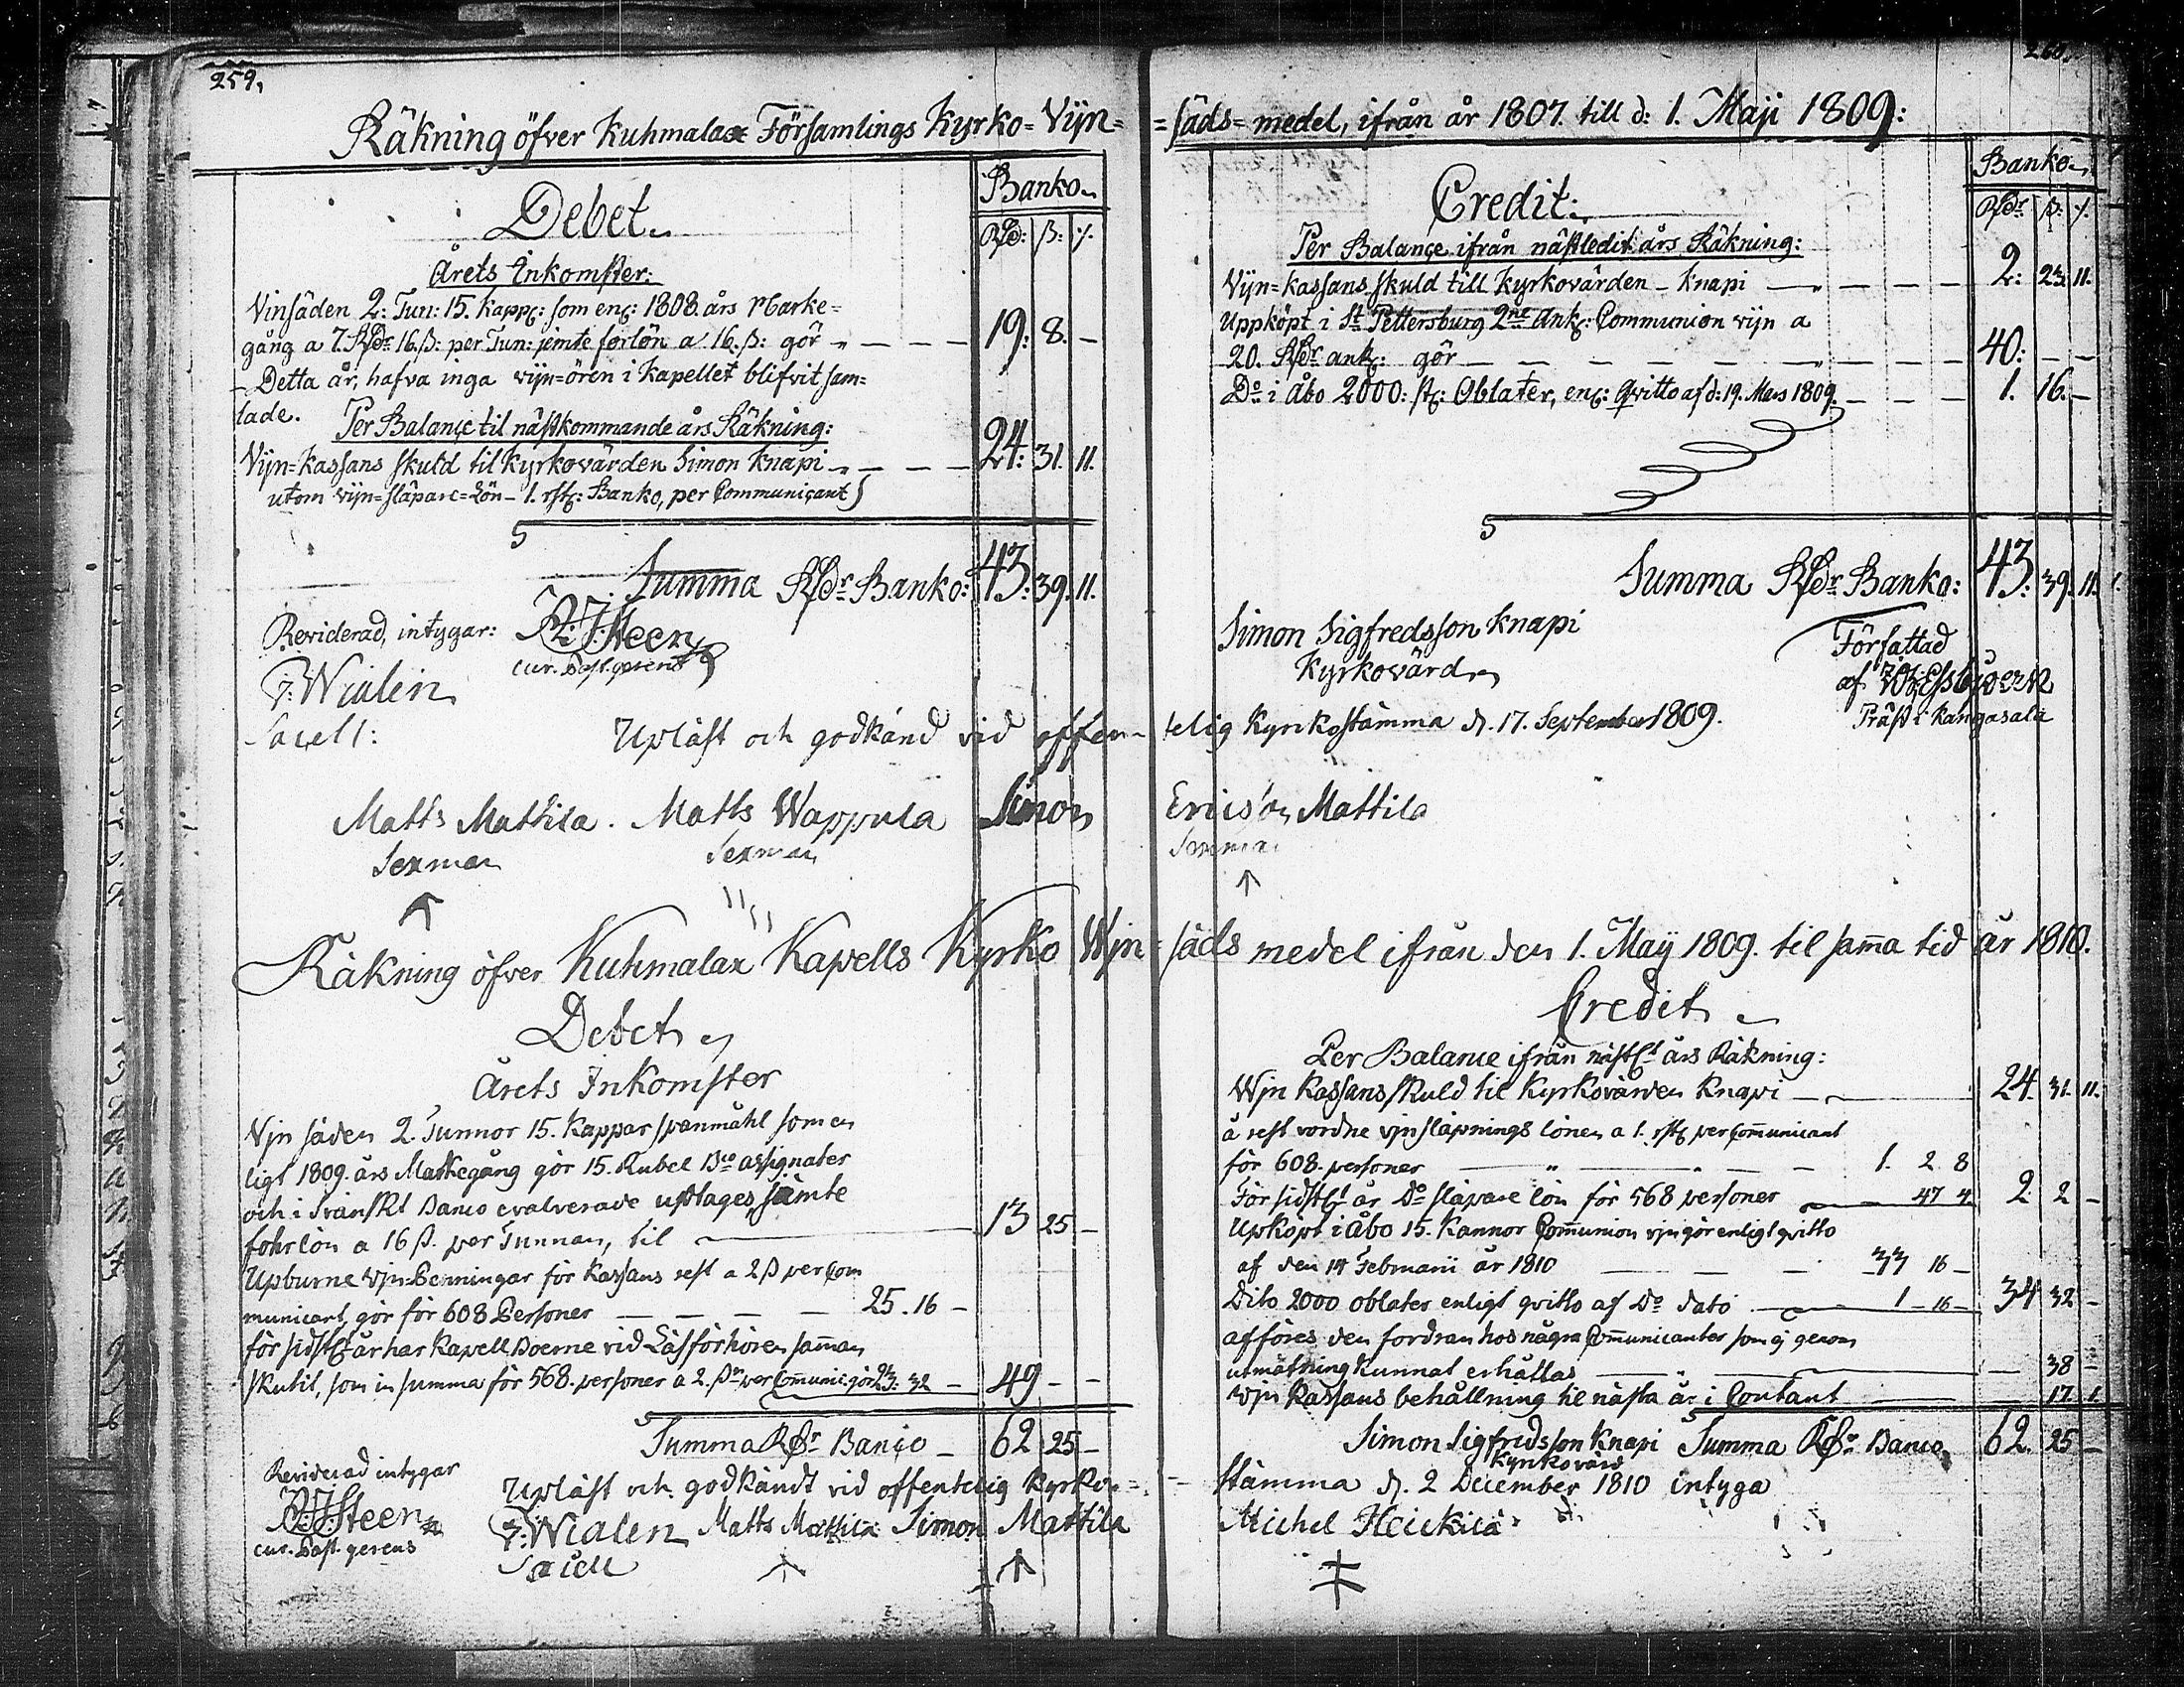 259.
Räkning öfver Kuhmalax Församlings Kyrko=Vijn=
Debet.
Banko.
Rd: ß: r.
Årets Inkomster:
Vinsäden 2: Tun: 15. kapp: som en: 1808 års Marke=
gång a 7. Rdr 16. ß: per Tun: jemte forlön a 16. ß: gör 19: 8. -
Detta år, hafva inga vijn=ören i Kapellet blifvit sam=
lade.
Per Balance til nästkommande års Räkning:
Vijn=Kassans skuld til Kyrkovärden Simon Knapi 24: 31. 11.
utom vijn=släpare=Lön - 1. rst: Banko, per Communicant
Summa Rdr Banko: 43: 39. 11.
Reviderad, intygar:
Steen
cur. Past. gerens
Wialen
Sacell:
260.
=säds=medel, ifrån år 1807. till d: 1. Maji 1809:
Credit:
Banko.
Rdr ß: r.
Per Balance ifrån nästledit års Räkning:
Vijn=kassans skuld till Kyrkovärden - Knapi 2: 23. 11.
Uppköpt i St Pettersburg 2ne Ank: Communion vijn a
20. Rdr ank: gör 40: - -
Do i Åbo 2000: st: Oblater, en: Qvitto af d: 19. Mars 1809. 1. 16. -
Summa Rdr Banko: 43: 39. 11.
Simon Sigfredsson Knapi
Kyrkovärd
Författad
af
Präst i Kangasala
Upläst och godkänd vid offentelig Kyrkostämma d. 17. September 1809.
Matts Mattila. Matts Wappula Simon Ericson Mattila
Sexman Sexman Sexman
Räkning öfver Kuhmalax Kapells Kyrko Wijn=säds medel ifrån den 1. Maij 1809. til sama tid år 1810.
Debet
Årets Inkomster
Vijn säden 2. Tunnor 15. Kappar spanmåhl som en
ligt 1809. års Markegång gör 15. Rubel Bco assignater
och i Svänskt Banco evalverade uptages, jämte
fohrlön a 16 ß. per Tunnan, til 13 25 -
Upburne Vijn Penningar för Kassans rest a 2 ß per Com
municant, gör för 608 Personer 25. 16 -
för sidstl. år har Kapell Boerne vid Läsförhören samman
skutit, som in summa för 568. personer a 2. ß per Comunic: gör 23: 32 - 49 - -
Summa Rdr Banco - 62 25 -
Reviderad intygar
Steen
cur. Past. gerens
Credit
Per Balance ifrån nästl. års Räkning:
Wijn Kassans skuld til Kyrkovärden Knapi 24. 31. 11.
å rest vordne vijn släpnings lönen a 1. rst per Communicant
för 608. personer 1. 2 8
För sidstl. år Do släpare lön för 568 personer 47 4 2. 2 -
Upköpt i Åbo 15. Kannor Communion vijn gör enligt qvitto
af den 14 Februarii år 1810 33 16 -
Dito 2000 oblater enligt qvitto af Do dato 1 - 16 - 34 32 -
afföres den fordran hos några Communicanter som ej genom
utmätning kunnat erhållas 38 -
Vijn Kassans behållning til nästa år i Contant 17. 1.
Simon Sigfredsson Knapi Summa Rdr Banco 62. 25 -
Kyrkovärd
Upläst och godkändt vid offentelig Kyrko=stämma d. 2 December 1810 intyga
Wialen Matts Mattila Simon Mattila Michel Heickilä
Sacell